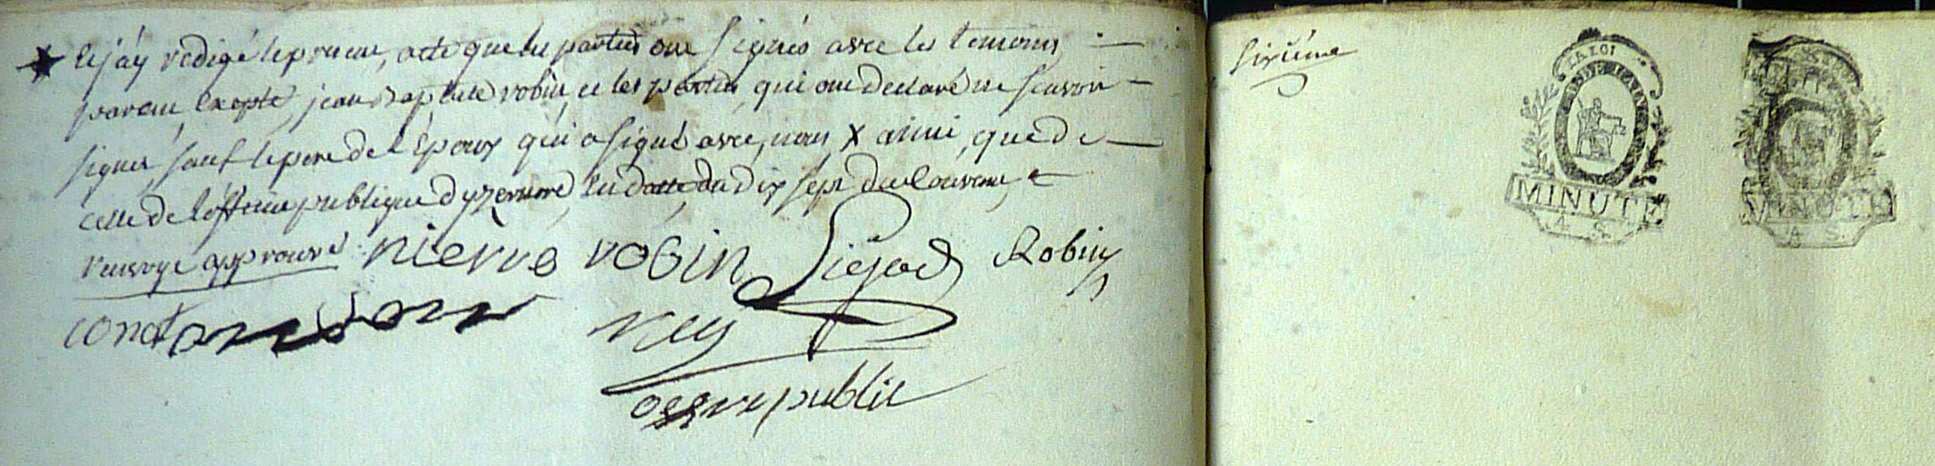 et j'ay redigé le present, acte que les parties ont signés avec les temoins
parent, excepté, jean baptiste robin, et les parties, qui ont declaré ne scavoir
signer, sauf le pere de l'Epoux qui a signé avec, nous X ainsi, que de
celle de l'officier publique d'yzernore, en datte, du dix sept du courant,
renvoye approuvé pierre robin Robin
officier public
sixième
LA LOI
MINUTE
A. S.
MINUTE
A. S.